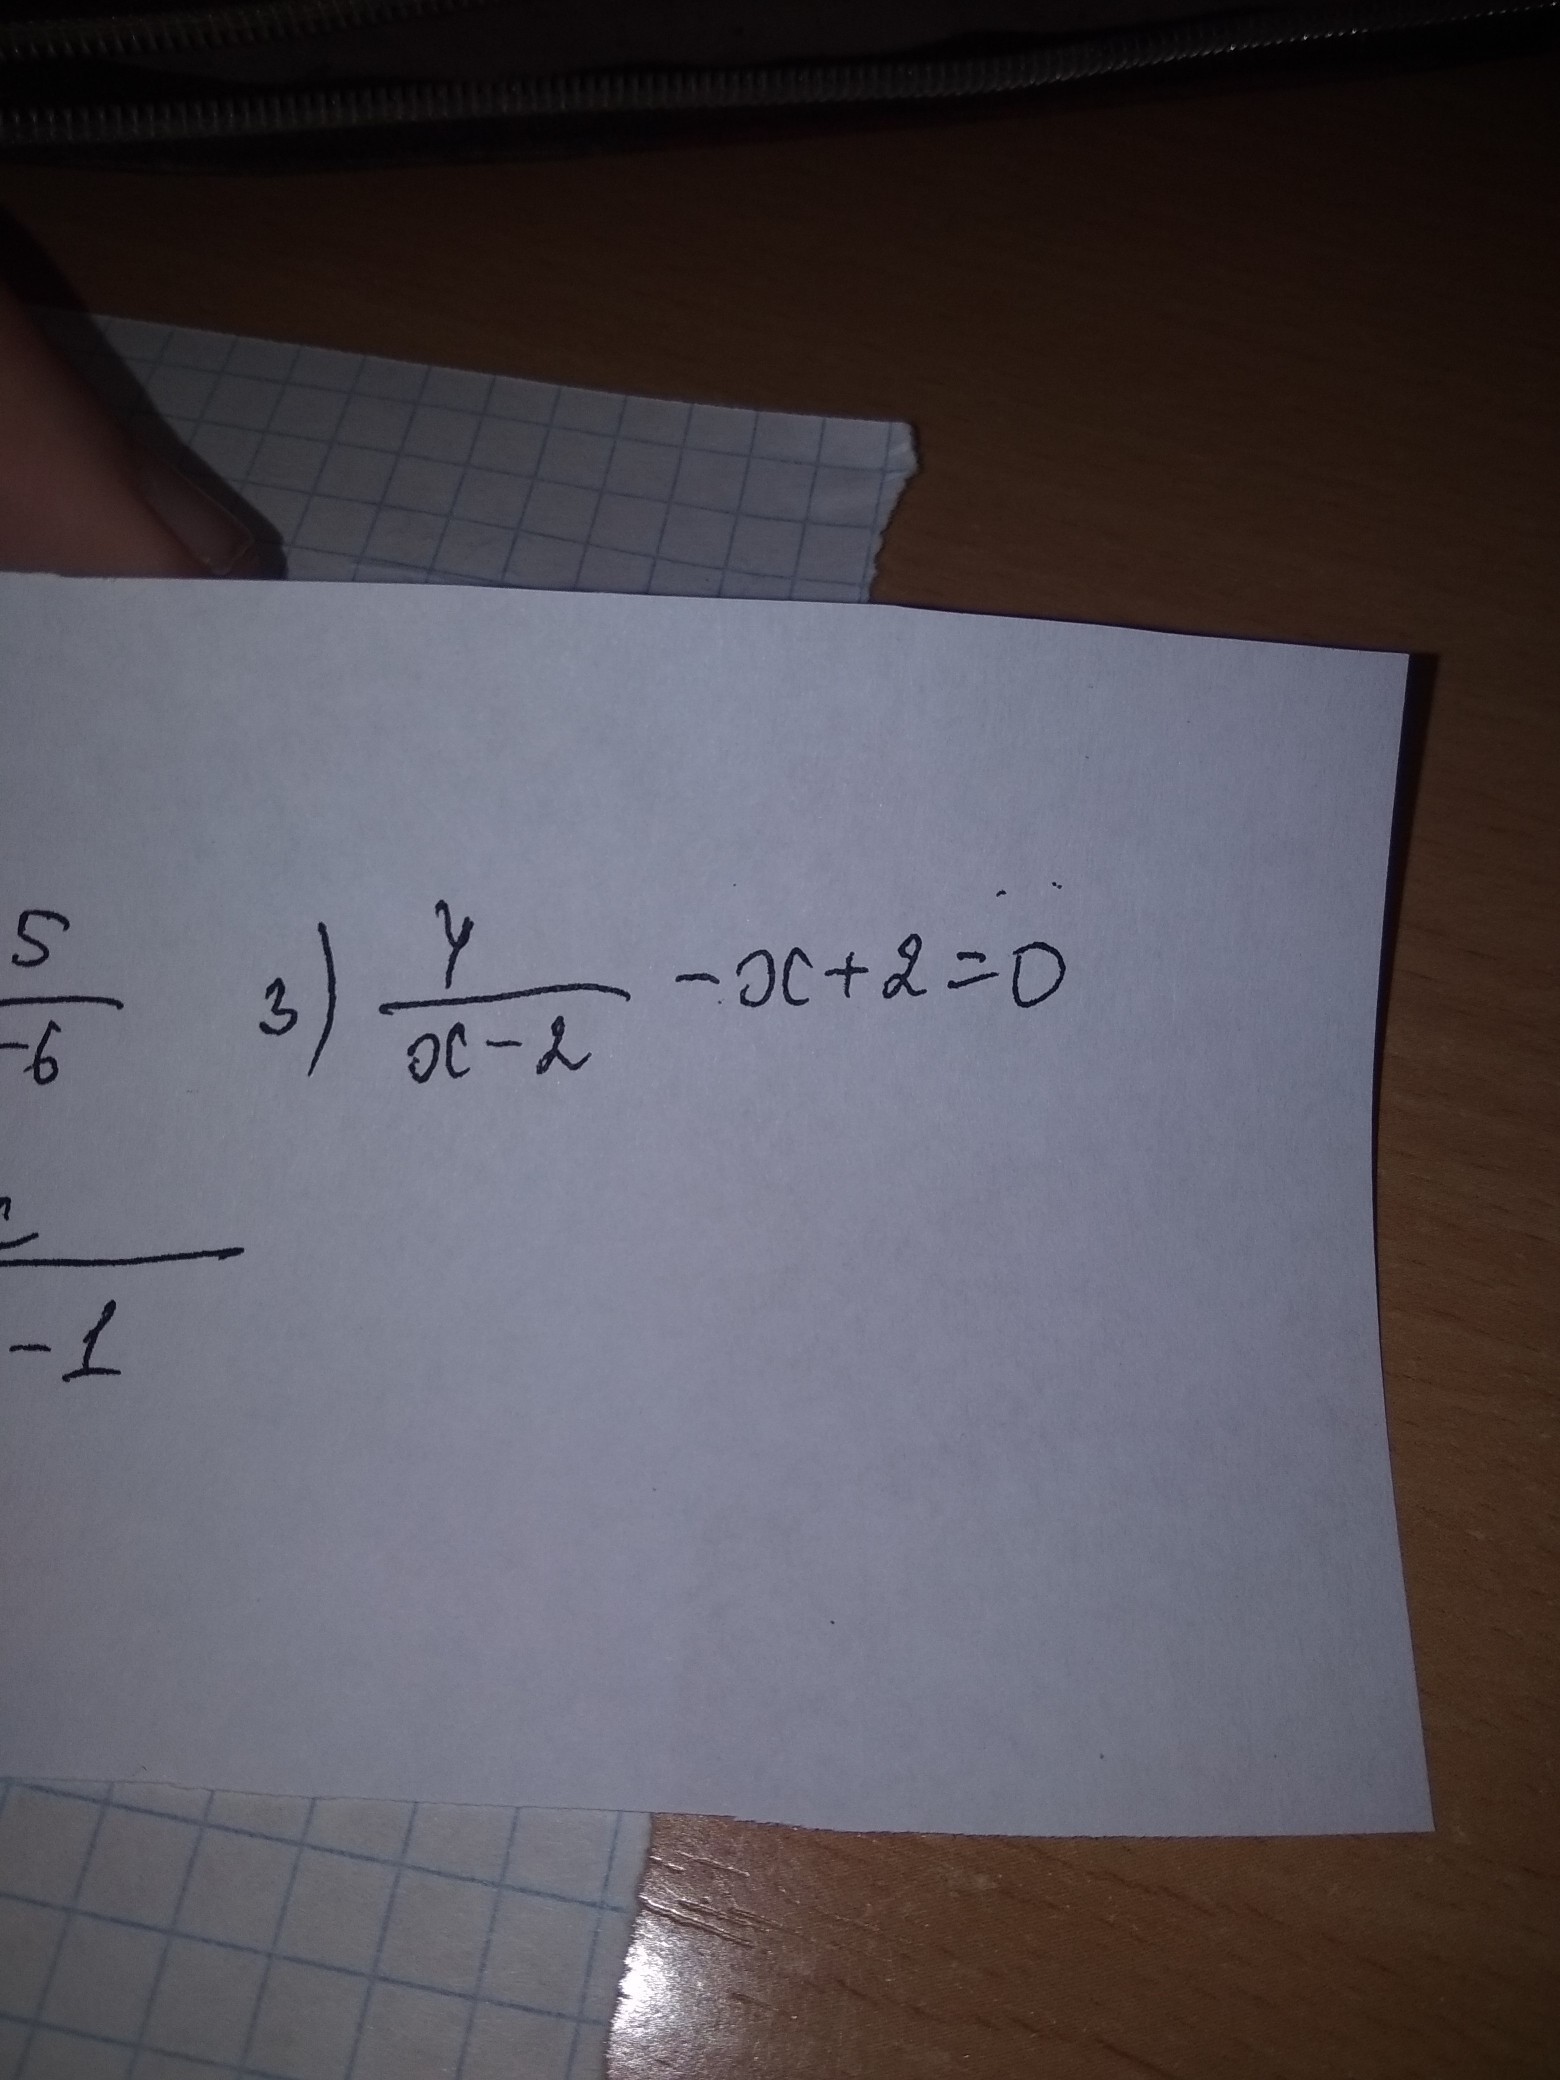 5/-6 3) 4/(x-2) -x+2=0
-1